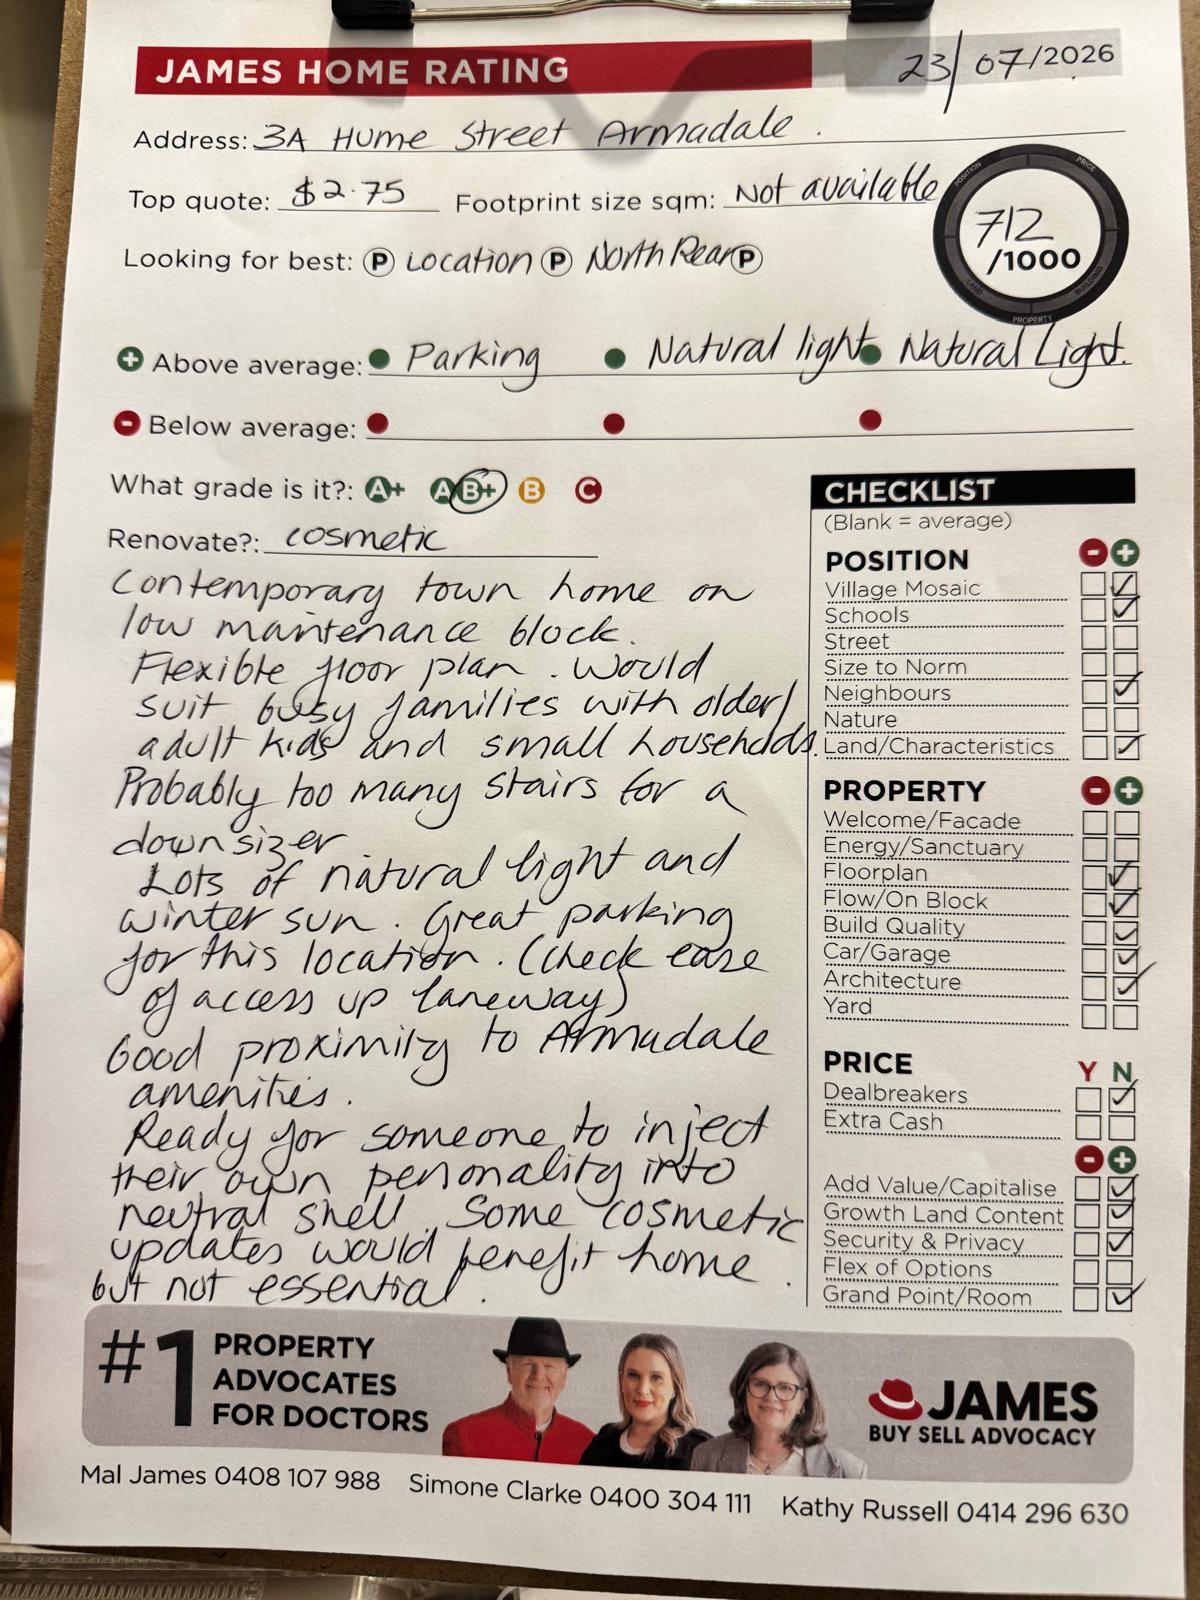 JAMES HOME RATING 23/07/2026
Address: 3A Hume Street Armadale.
Top quote: $2.75 Footprint size sqm: Not available
POSITION PRICE BUILDING PROPERTY LAND
712
/1000
Looking for best: P Location P North Rear P
+ Above average: Parking Natural light Natural Light.
- Below average:
What grade is it?: A+ A B+ B C
Renovate?: cosmetic
Contemporary town home on
low maintenance block.
Flexible floor plan. Would
suit busy families with older/
adult kids and small households.
Probably too many stairs for a
downsizer
Lots of natural light and
winter sun. Great parking
for this location. (check ease
of access up laneway)
Good proximity to Armadale
amenities.
Ready for someone to inject
their own personality into
neutral shell. Some cosmetic
updates would benefit home
but not essential.
CHECKLIST
(Blank = average)
POSITION - +
Village Mosaic ✓
Schools ✓
Street
Size to Norm
Neighbours ✓
Nature
Land/Characteristics ✓
PROPERTY - +
Welcome/Facade
Energy/Sanctuary
Floorplan ✓
Flow/On Block ✓
Build Quality ✓
Car/Garage ✓
Architecture ✓
Yard
PRICE Y N
Dealbreakers ✓
Extra Cash
- +
Add Value/Capitalise ✓
Growth Land Content ✓
Security & Privacy ✓
Flex of Options
Grand Point/Room ✓
#1 PROPERTY
ADVOCATES
FOR DOCTORS
JAMES
BUY SELL ADVOCACY
Mal James 0408 107 988 Simone Clarke 0400 304 111 Kathy Russell 0414 296 630